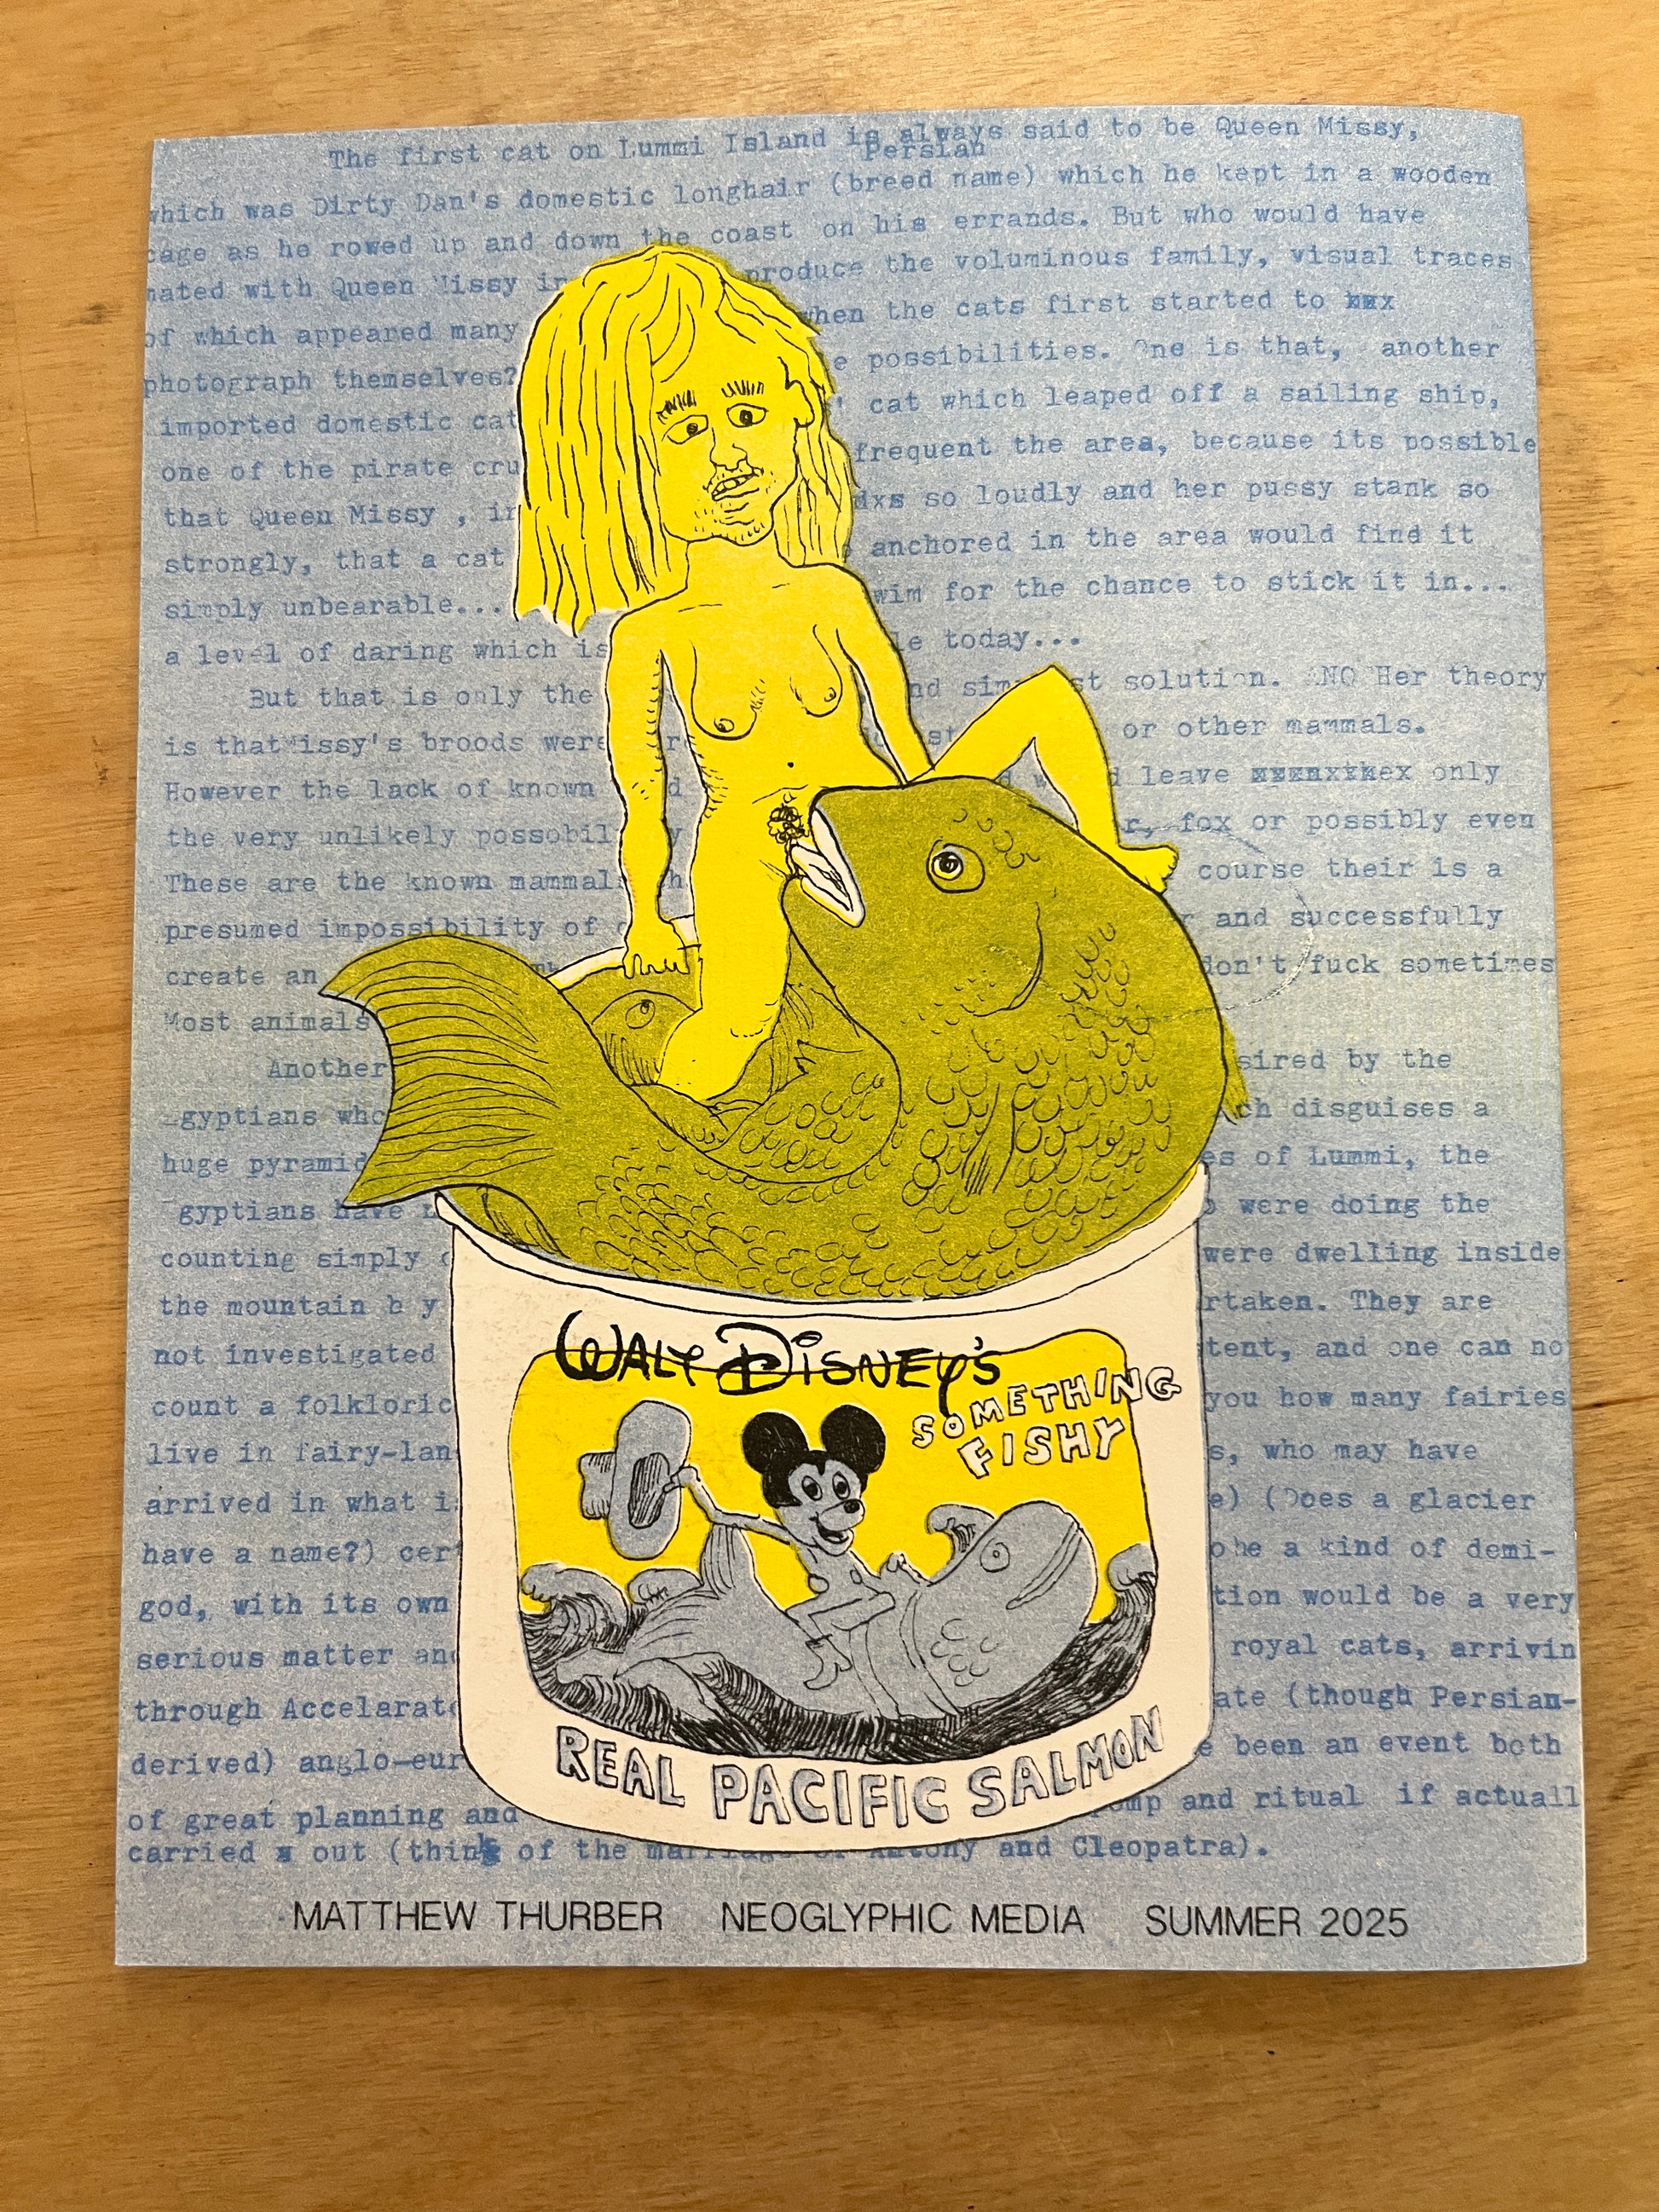 The first cat on Lummi Island is always said to be Queen Missy,
Persian
which was Dirty Dan's domestic longhair (breed name) which he kept in a wooden
cage as he rowed up and down the coast on his errands. But who would have
mated with Queen Missy in produce the voluminous family, visual traces
of which appeared many when the cats first started to xxx
photograph themselves? possibilities. One is that, another
imported domestic cat cat which leaped off a sailing ship,
one of the pirate cru frequent the area, because its possible
that Queen Missy , in so loudly and her pussy stank so
strongly, that a cat anchored in the area would find it
simply unbearable... swim for the chance to stick it in...
a level of daring which is today...
But that is only the and simplest solution. Her theory
is that issy's broods were or other mammals.
However the lack of known leave only
the very unlikely possobil fox or possibly even
These are the known mammal course their is a
presumed impossibility of and successfully
create an don't fuck sometimes
Most animals
Another sired by the
gyptians who disguises a
huge pyramid es of Lummi, the
gyptians have were doing the
counting simply were dwelling inside
the mountain b y rtaken. They are
not investigated tent, and one can no
count a folkloric you how many fairies
live in fairy-lan s, who may have
arrived in what i e) (Does a glacier
have a name?) cer be a kind of demi-
god, with its own tion would be a very
serious matter an royal cats, arrivin
through Accelarat ate (though Persian-
derived) anglo-eur been an event both
of great planning and and ritual if actuall
carried x out (think of the marriage of Antony and Cleopatra).
WALT DISNEY'S
SOMETHING
FISHY
REAL PACIFIC SALMON
MATTHEW THURBER NEOGLYPHIC MEDIA SUMMER 2025